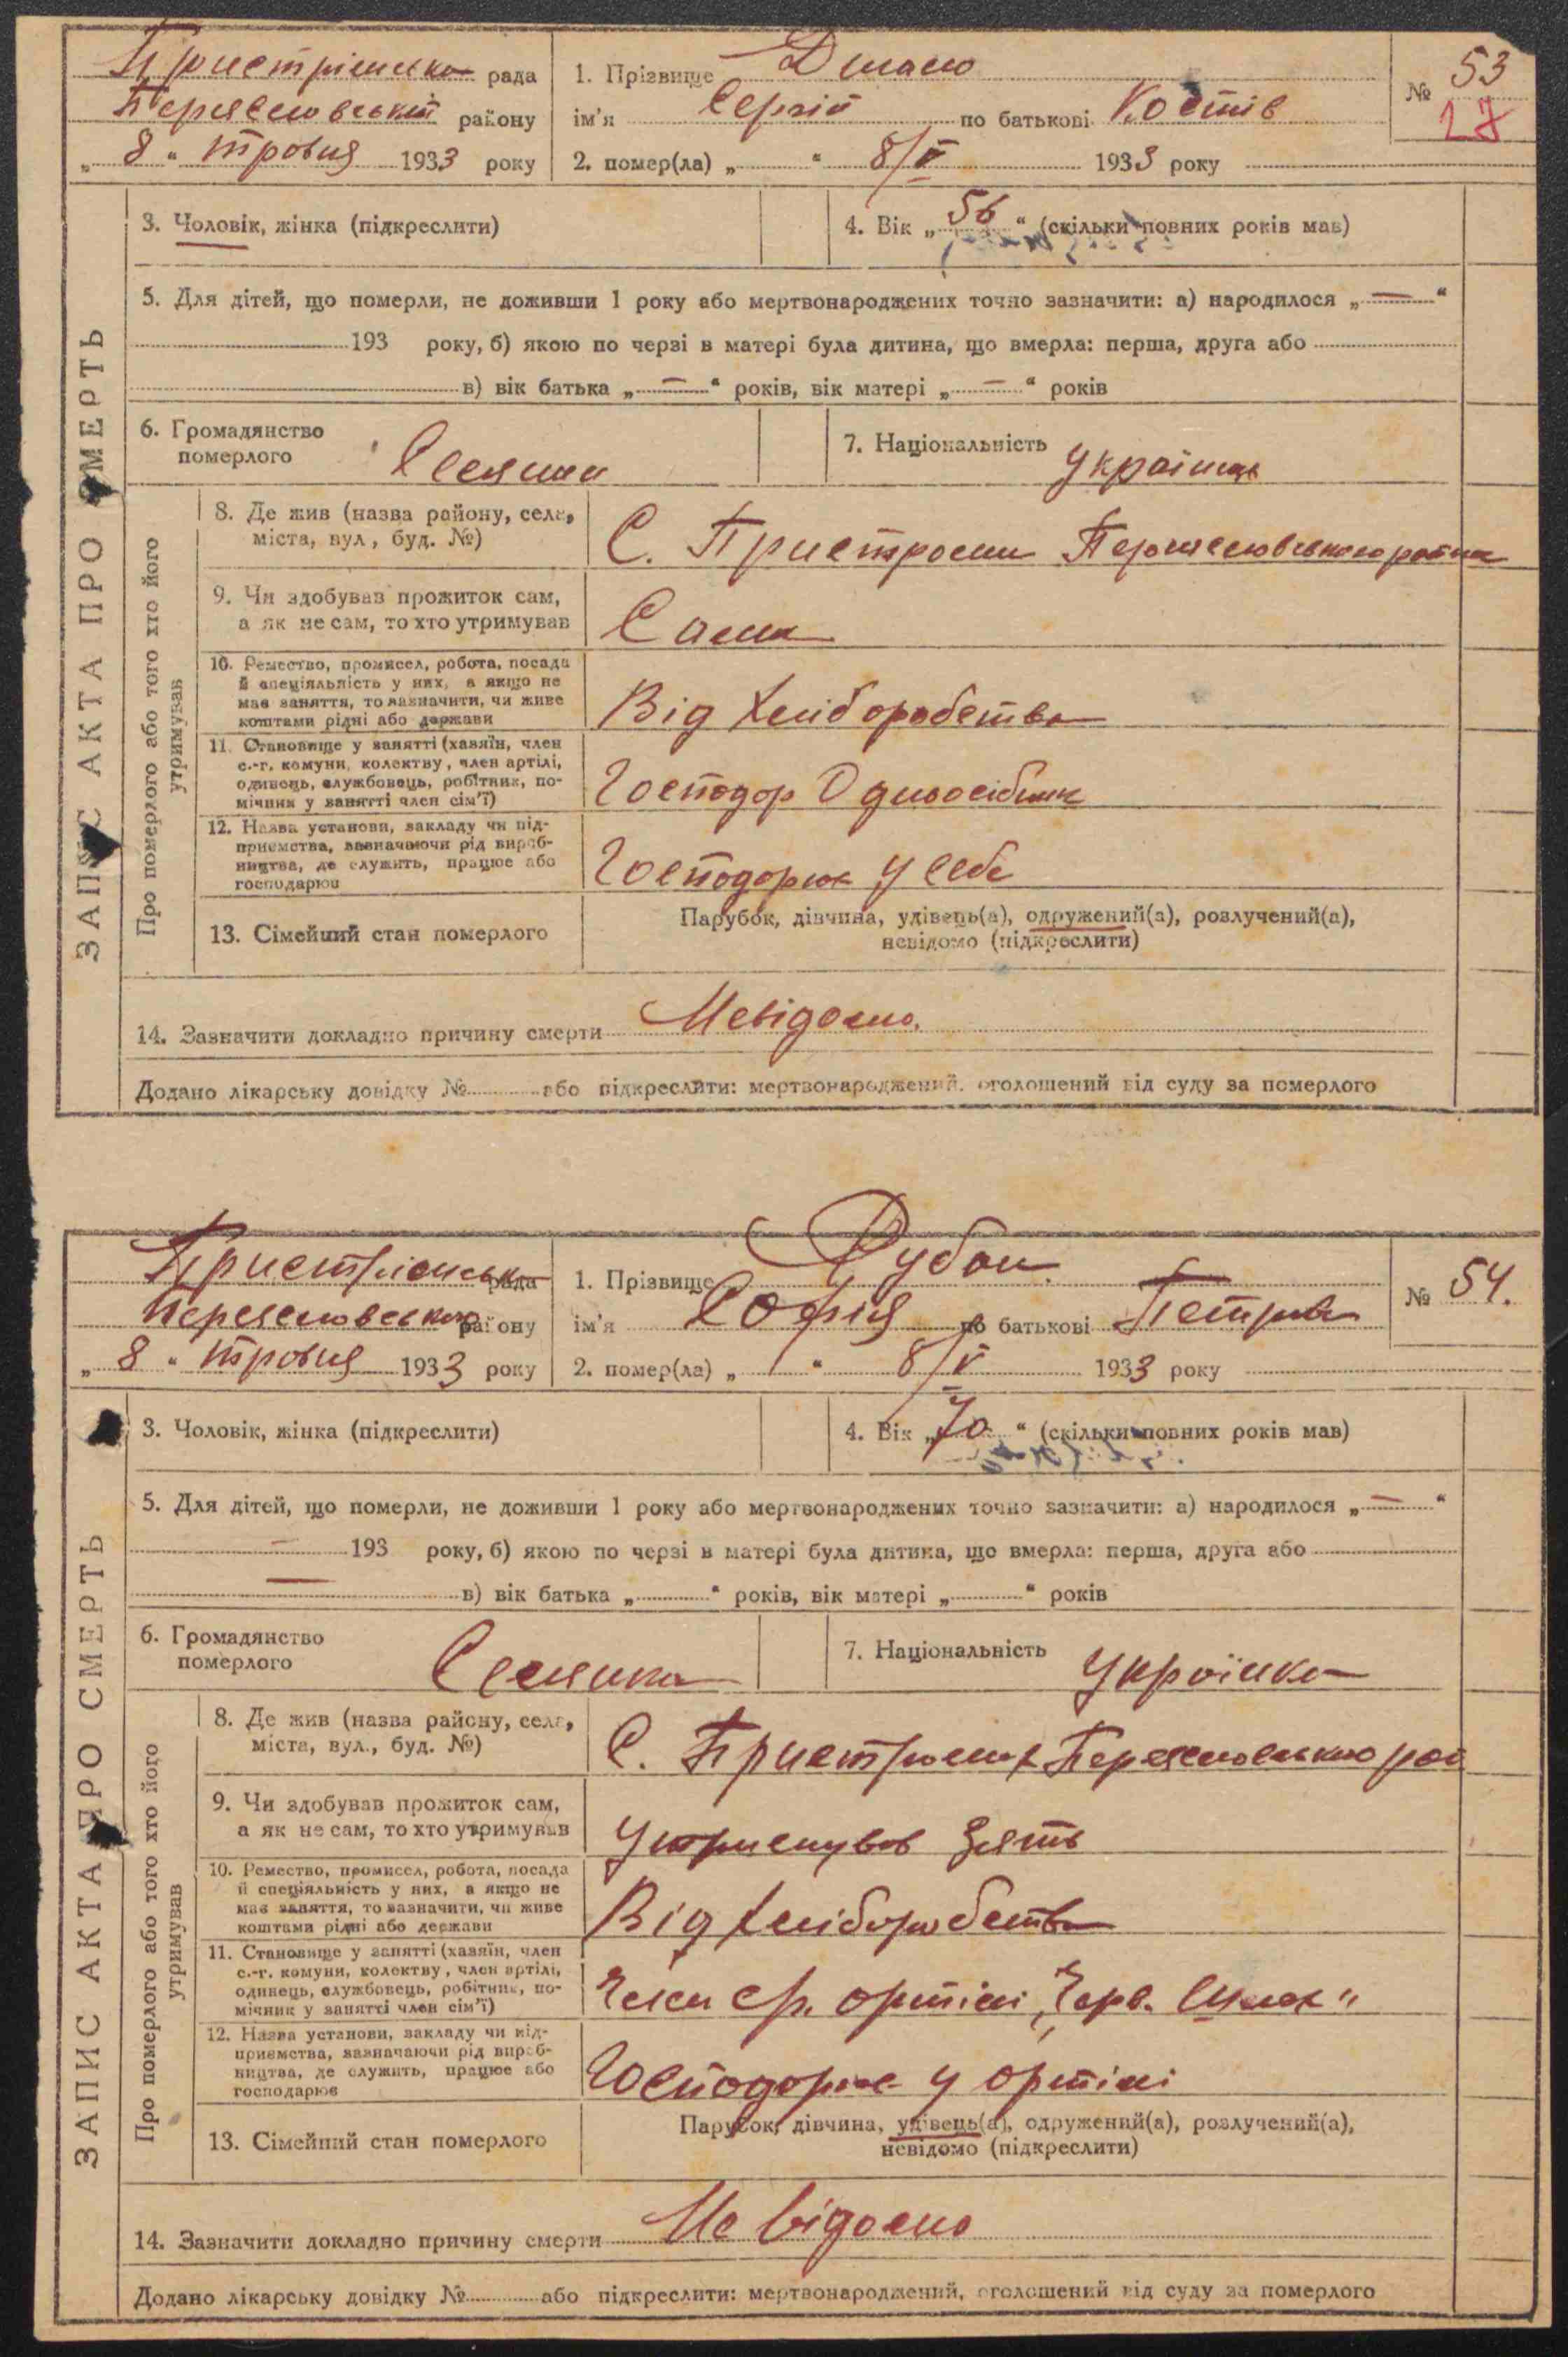 Пристрімська рада
Переяславський району
„ 8 “ травня 1933 року
1. Прізвище
ім'я Сергій по батькові Костів
2. помер(ла) „ “ 8/V 1933 року
№ 53
27
ЗАПИС АКТА ПРО СМЕРТЬ
3. Чоловік, жінка (підкреслити)
4. Вік „ 56 “ (скільки повних років мав)
5. Для дітей, що померли, не доживши 1 року або мертвонароджених точно зазначити: а) народилося „ — “
193 року, б) якою по черзі в матері була дитина, що вмерла: перша, друга або
в) вік батька „ — “ років, вік матері „ — “ років
6. Громадянство
померлого Селянин
7. Національність українець
Про померлого або того хто його
утримував
8. Де жив (назва району, села,
міста, вул, буд. №)
С. Пристроми Переяславського района
9. Чи здобував прожиток сам,
а як не сам, то хто утримував
Сам
10. Ремество, промисел, робота, посада
й спеціяльність у них, а якщо не
має заняття, то зазначити, чи живе
коштами рідні або держави
Від Хліборобства
11. Становище у занятті (хазяїн, член
с.-г. комуни, колектву, член артілі,
одинець, службовець, робітник, по-
мічник у занятті член сім'ї)
Господар Одноосібник
12. Назва установи, закладу чи під-
приємства, зазначаючи рід вироб-
ництва, де служить, працює або
господарює
Господорює у себе
13. Сімейний стан померлого
Парубок, дівчина, удівець(а), одружений(а), розлучений(а),
невідомо (підкреслити)
14. Зазначити докладно причину смерти Невідомо.
Додано лікарську довідку № або підкреслити: мертвонароджений, оголошений від суду за померлого
Пристрімська рада
Переяславського району
„ 8 “ травня 1933 року
1. Прізвище Дубан.
ім'я Софія по батькові Петрова
2. помер(ла) „ “ 8/V 1933 року
№ 54.
ЗАПИС АКТА ПРО СМЕРТЬ
3. Чоловік, жінка (підкреслити)
4. Вік „ 70 “ (скільки повних років мав)
5. Для дітей, що померли, не доживши 1 року або мертвонароджених точно зазначити: а) народилося „ — “
— 193 року, б) якою по черзі в матері була дитина, що вмерла: перша, друга або
— в) вік батька „ “ років, вік матері „ “ років
6. Громадянство
померлого Селянка
7. Національність українка
Про померлого або того хто його
утримував
8. Де жив (назва району, села,
міста, вул., буд. №)
С. Пристромах Переяславського рай
9. Чи здобував прожиток сам,
а як не сам, то хто утримував
Утримував Зять
10. Ремество, промисел, робота, посада
й спеціяльність у них, а якщо не
має заняття, то зазначити, чи живе
коштами рідні або держави
Від Хліборобства
11. Становище у занятті (хазяїн, член
с.-г. комуни, колектву, член артілі,
одинець, службовець, робітник, по-
мічник у занятті член сім'ї)
Член ср. ортілі „Черв. Шлях“
12. Назва установи, закладу чи під-
приємства, зазначаючи рід вироб-
ництва, де служить, працює або
господарює
Господорює у ортілі
13. Сімейний стан померлого
Парубок, дівчина, удівець(а), одружений(а), розлучений(а),
невідомо (підкреслити)
14. Зазначити докладно причину смерти Не відомо
Додано лікарську довідку № або підкреслити: мертвонароджений, оголошений від суду за померлого